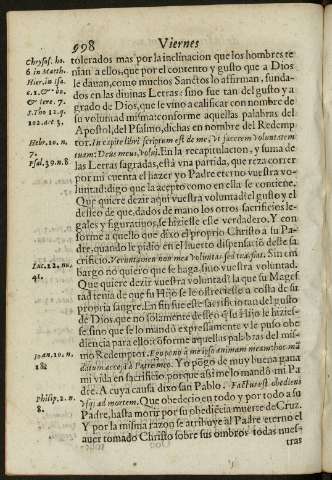 998 Viernes
tolerados mas por la inclinacion que los hombres te
nian a ellos, que por el contento y gusto que a Dios
le dauan, como muchos Sanctos lo affirman, funda-
dos en las diuinas Letras: sino fue tan del gusto y a
grado de Dios, que le vino a calificar con nombre de
su voluntad misma: conforme aquellas palabras del
Apostol, del Psalmo, dichas en nombre del Redemp
tor. In capite libri scriptum est de me, vt facerem voluntatem
tuam: Deus meus, volui. En la recapitulacion, y suma de
las Letras sagradas, está vna partida, que reza correr
por mi cuenta el hazer yo Padre eterno vuestra vo-
luntad: digo que la acepto como en ella se contiene.
Que quiere dezir aqui vuestra voluntad: el gusto y el
desseo de que, dados de mano los otros sacrificios le-
gales y figuratiuos, se hiziesse este verdadero. Y con
forme a aquello que dixo el proprio Christo a su Pa-
dre, quando le pidio en el huerto dispensaciõ deste sa
crificio. Veruntamen non mea voluntas sed tua fiat. Sin em
bargo no quiero que se haga, sino vuestra voluntad.
Que quiere dezir vuestra voluntad: la que su Magest
tad tenia de que su Hijo se le ofreciesse a costa de su
propria sangre. En fin fue este sacrificio tan del gusto
de Dios, que no solamente desseó q̃ su Hijo le hizies-
se, sino que se lo mandò expressamente y le puso obe
diencia para ello: cõforme aquellas palabras del mis-
mo Redemptor. Ego pono à me ipso animam meam: hoc mã
datum accepi à Patre meo. Yo pongo de muy buena gana
mi vida en sacrificio, porque assi me lo mandò mi Pa
dre. A cuya causa dixo san Pablo. Factus est obediens
vsque ad mortem. Que obedecio en todo y por todo a su
Padre, hasta morir por su obediẽcia muerte de Cruz.
Y por la misma razon se atribuye al Padre eterno el
auer tomado Christo sobre sus ombros todas nues-
tras
Chrysos. ho.
6 in Matth.
Hier. in Isa.
c. 1. &
& Iere. 7.
S. Tho 12. q.
102. art 3.
Hebr. 10. n.
7.
Psal. 39. n. 8
Luc. 22. nu.
42.
Joan. 10. n.
18.
Philip. 2. n.
8.